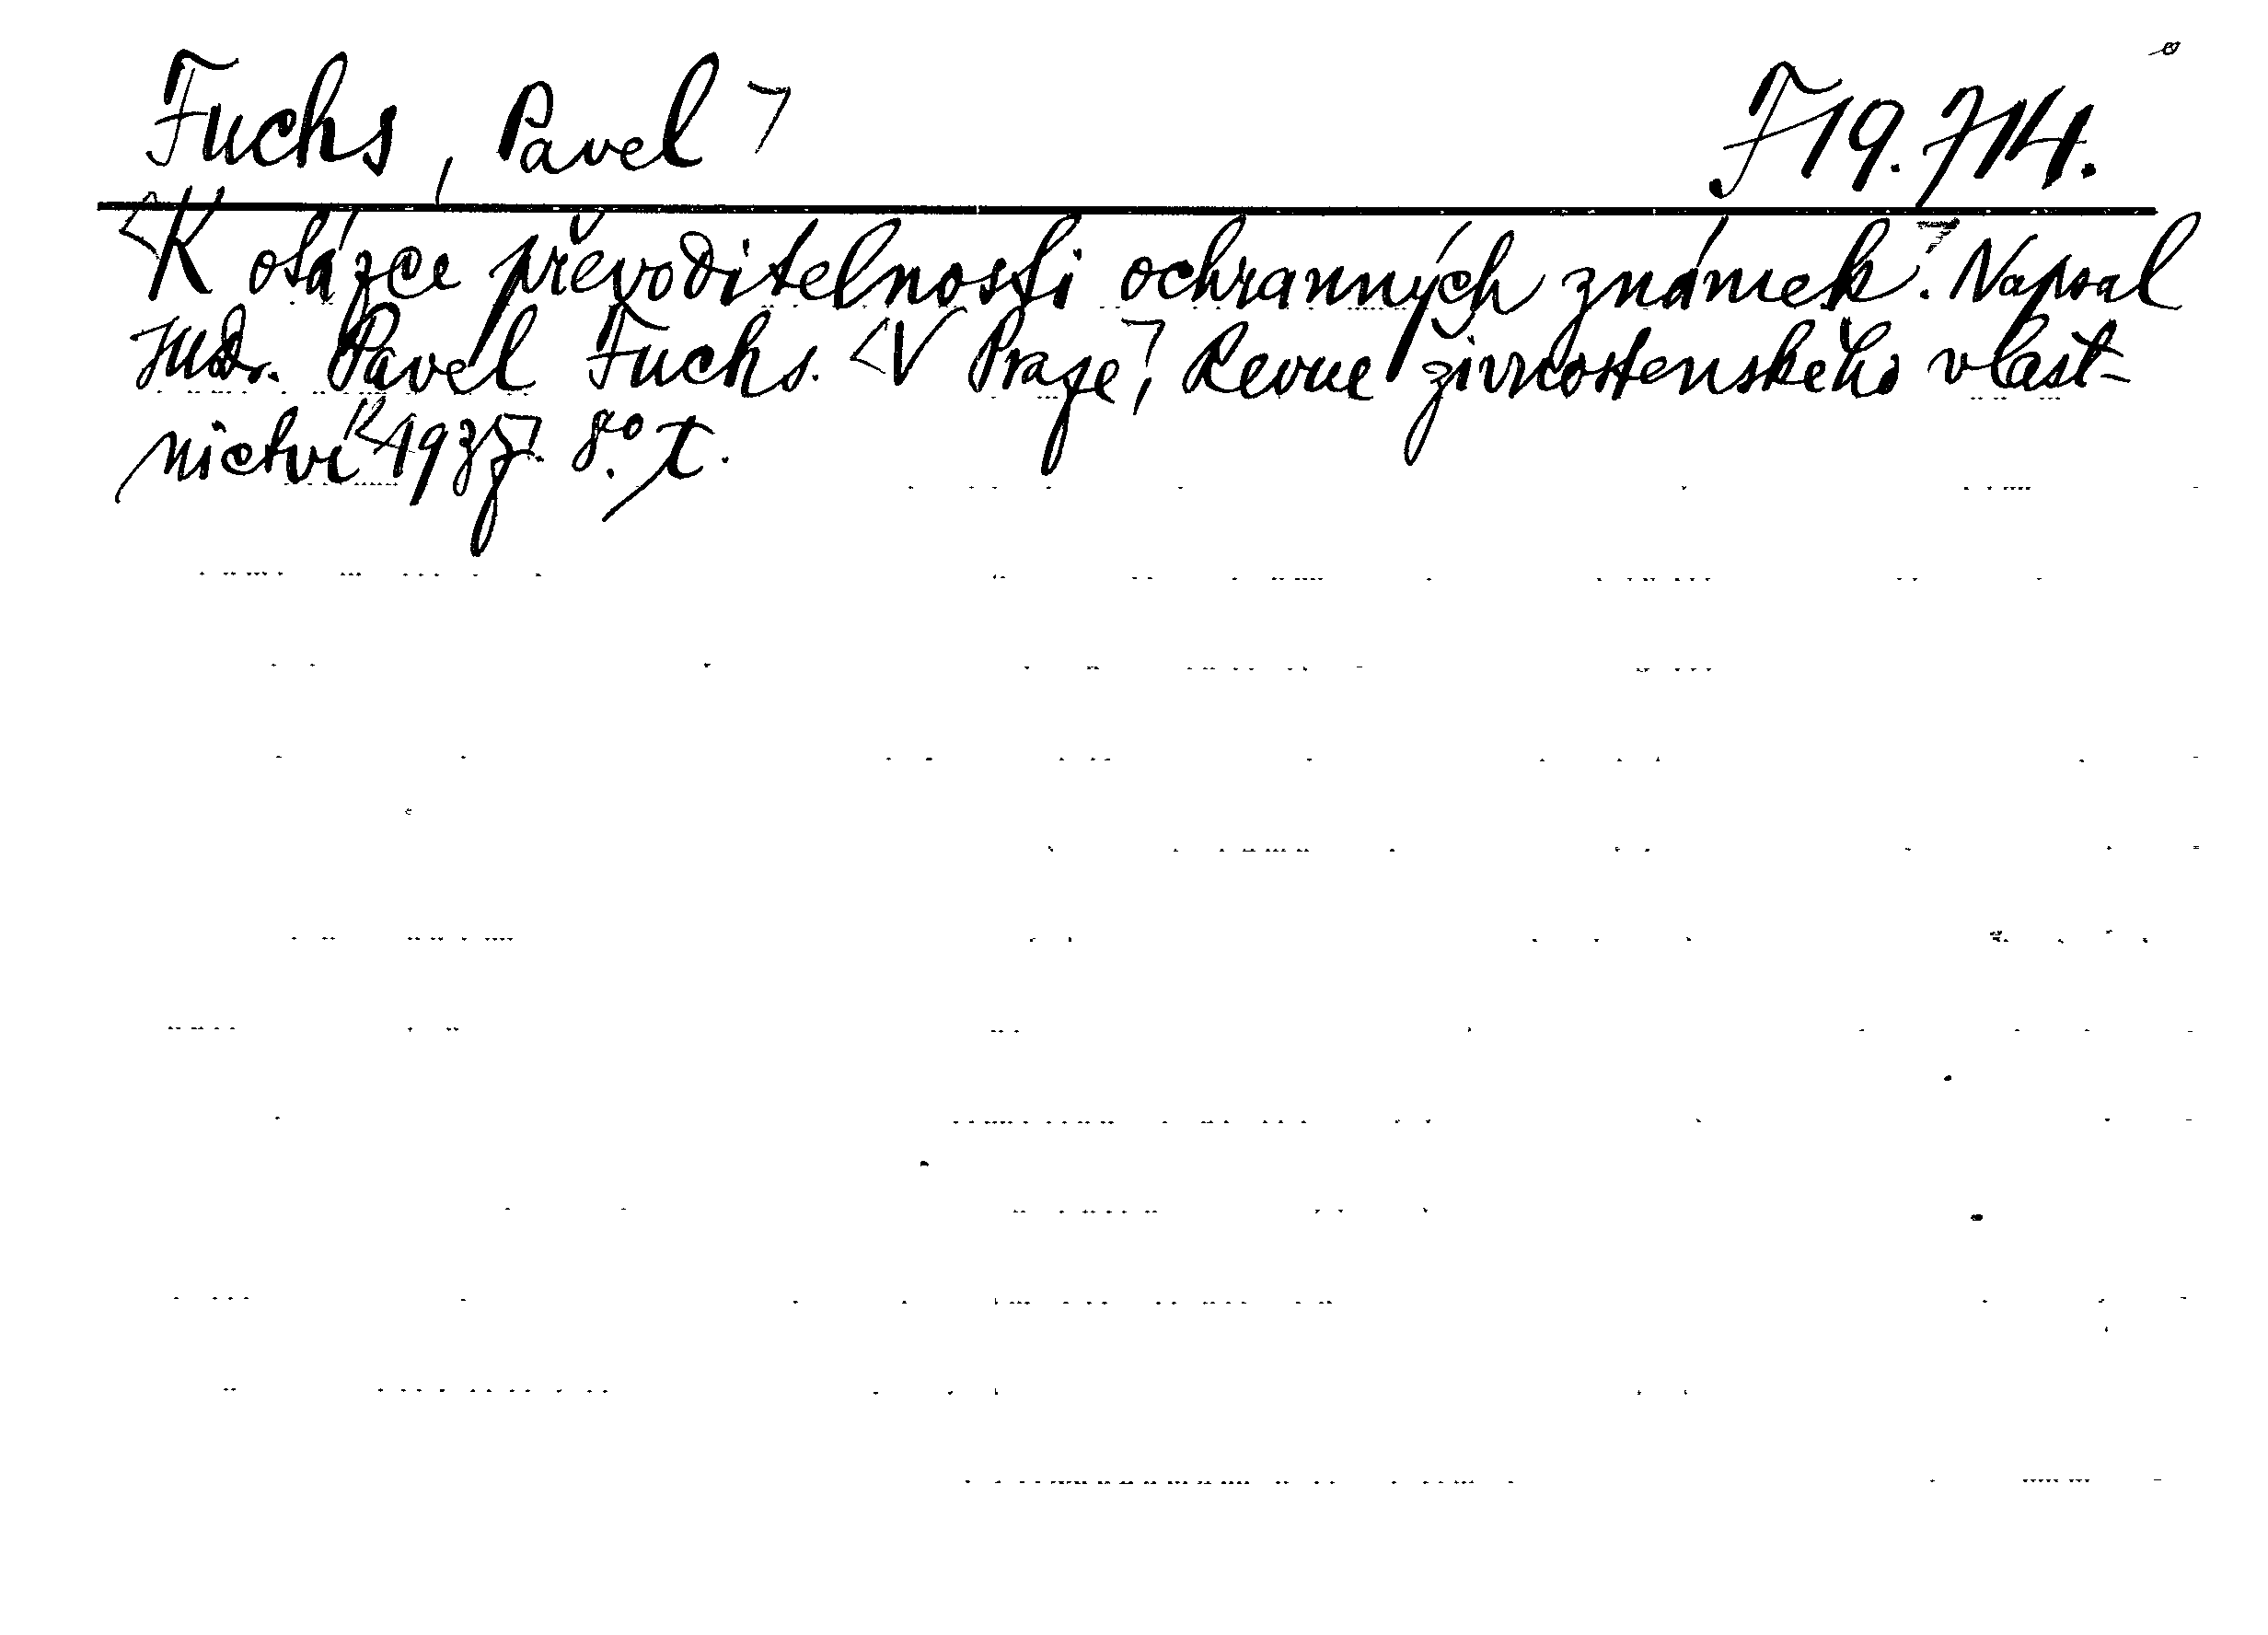 Fuchs, Pavel ⌝ F 19.714.
<K otázce převoditelnosti ochranných známek⌝. Napsal
JUDr. Pavel Fuchs. <V Praze⌝, Revue živnostenského vlast-
nictví <1937⌝. 8°.